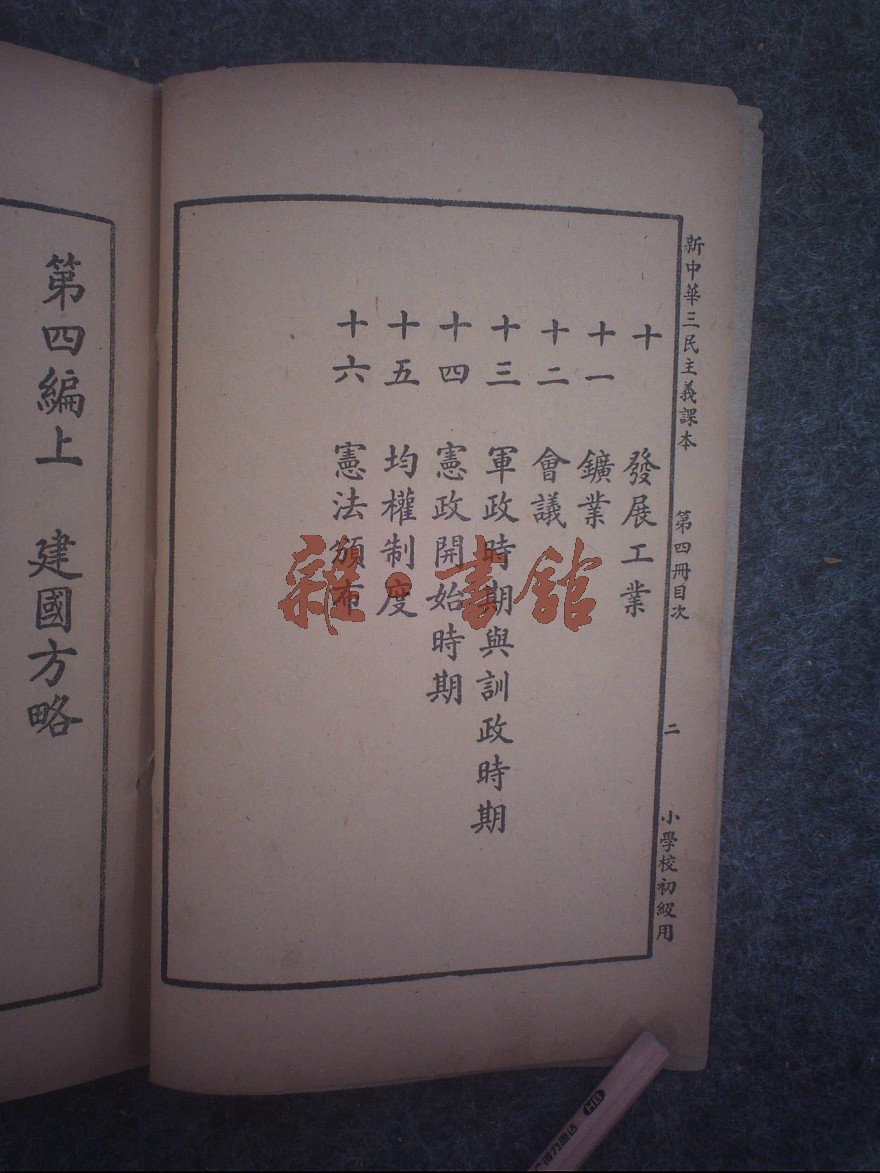 新中華三民主義課本 第四冊目次 二 小學校初級用
十 發展工業
十一 鑛業
十二 會議
十三 軍政時期與訓政時期
十四 憲政開始時期
十五 均權制度
十六 憲法頒布
第四編上 建國方略
雜·書館
HB